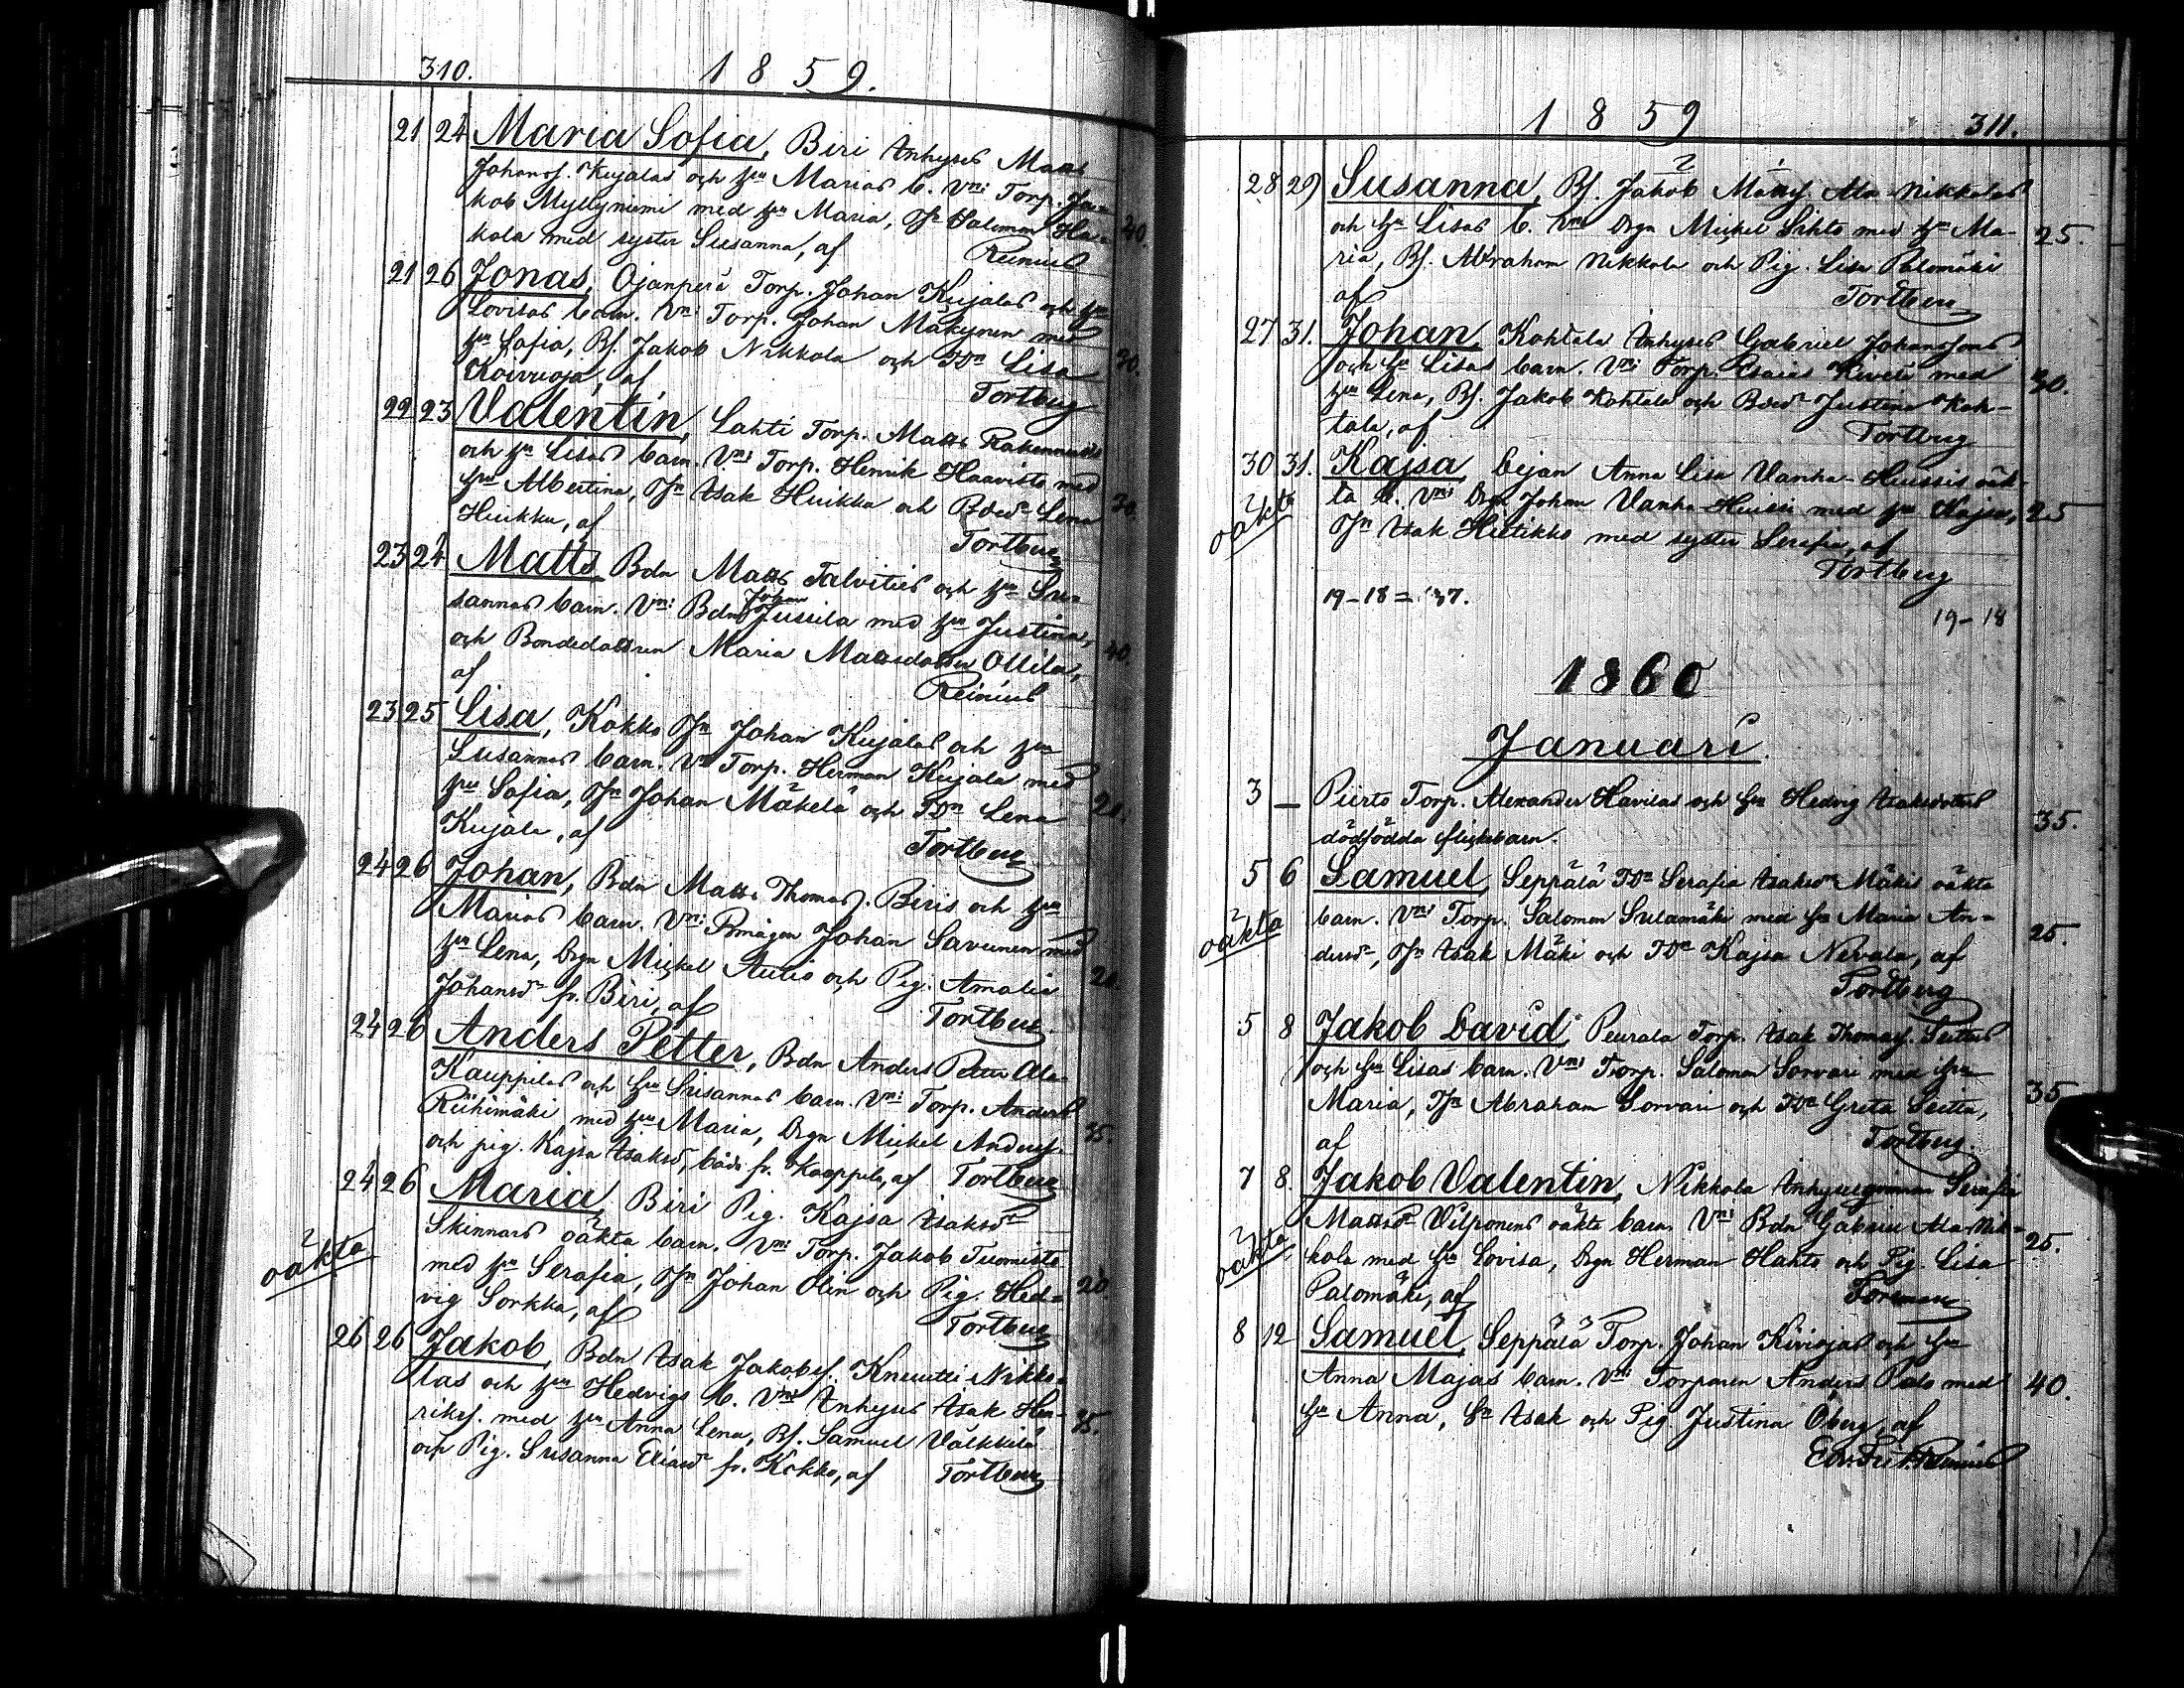 310. 1859.
21 24 Maria Sofia, Biri Inhyses Matts
Johanss. Kujalas och hu Marias b. Vni: Torp. Ja-
kob Myllyniemi med hu Maria, Jn Salomon Ha-
kola med syster Susanna, af Reinius 40.
21 26 Jonas, Ojanperä Torp. Johan Kujalas och hu
Lovisas barn. Vni: Torp. Johan Mäkynen med
hu Sofia, Bs. Jakob Nikkola och Dn Lisa 30.
Koivuoja, af Tortberg
22 23 Valentin, Lahti Torp. Matts
och hu Lisas barn. Vni: Torp. Henrik Haavisto med
hu Albertina, Jn Isak Huikku och Bded. Lena 30.
Huikku, af Tortberg
23 24 Matts, Bdn Matts Talvities och hu Su-
sannas barn. Vni: Bdn Johan Jussila med hu Justina,
och Bondedottren Maria Mattsdotter Ollila, 40.
af Reinius
23 25 Lisa, Kokko Jn Johan Kujalas och hu
Susannas barn. Vni Torp. Herman Kujala med
hu Sofia, Jn Johan Mäkelä och Dn Lena 20.
Kujala, af Tortberg
24 26 Johan, Bdn Matts Thomass. Biris och hu
Marias barn. Vni: Bmågen Johan Savunen med
hu Lena, Drgn Mickel Autio och Pig. Amalia 20.
Johansd. fr. Biri, af Tortberg
24 26 Anders Petter, Bdn Anders Petter Ala-
Kauppilas och hu Susannas barn. Vni: Torp. Anders
Riihimäki med hu Maria, Drgn Mickel Anderss. 35.
och pig. Kajsa Isaksd, både fr. Kauppila, af Tortberg
24 26 Maria, Biri Pig. Kajsa Isaksd
oäkta Skinnars oäkta barn. Vni: Torp. Jakob Tuomisto
med hu Serafia, Jn Johan Olin och Pig. Hed- 20.
vig Sorkka, af Tortberg
26 26 Jakob, Bdn Isak Jakobss. Knuutti-Nikko-
las och hu Hedvigs b. Vni Inhyses Isak Hen-
rikss. med hu Anna Lena, Bs. Samuel Välkkilä 35.
och Pig. Susanna Eliasd fr. Kokko, af Tortberg
1859 311.
28 29 Susanna, Bs. Jakob Ala-Nikkolas
och hu Lisas b. Vni Drgn Mickel Sihto med hu Ma- 25.
ria, Bs. Abraham Nikkola och Pig. Lisa Palomäki
af Tortberg
27 31. Johan, Kohtala Inhyses Gabriel Johanssons
och hu Lisas barn. Vni: Torp. Esaias Kivelä med 30.
hu Lena, Bs. Jakob Kohtala och Bded. Justina Koh-
tala, af Tortberg
30 31. Kajsa, Anna Lisa Vanha-Huissis oäk-
oäkta ta b. Vni: Drgn Johan Vanha-Huissi med hu Kajsa, 25
Jn Isak Hietikko med syster Serafia, af
Tortberg
19-18=37.
19-18
1860
Januari
3 — Puerto Torp. Alexander Havilas och hu Hedvig Isaksdotters 35.
dödfödda flickebarn.
5 6 Samuel, Seppälä Dn Serafia Isaksd Mäkis oäkta
oäkta barn. Vni Torp. Salomon Sulamäki med hu Maria An- 25.
dersd, Jn Isak Mäki och Dn Kajsa Nevala, af
Tortberg
5 8 Jakob David, Peurala Torp. Isak Thomass. Seittus
och hu Lisas barn. Vni Torp. Salomon Sorvari med hu
Maria, Jn Abraham Sorvari och Dn Greta Seittu, 35
af Tortberg
7 8. Jakob Valentin, Nikkola Inhysesqvinnan Serafia
oäkta Mattsd Vilponens oäkta barn. Vni Bdn Gabriel Ala-Nik- 25.
kola med hu Lovisa, Drgn Herman Hahto och Pig. Lisa
Palomäki, af Forsman
8 12 Samuel, Seppälä Torp. Johan Kiviojas och hu
Anna Majas barn. Vni Torparen Anders Palo med 40.
hu Anna, Sn Isak och Pig Justina Öberg, af
Edv. Reinius